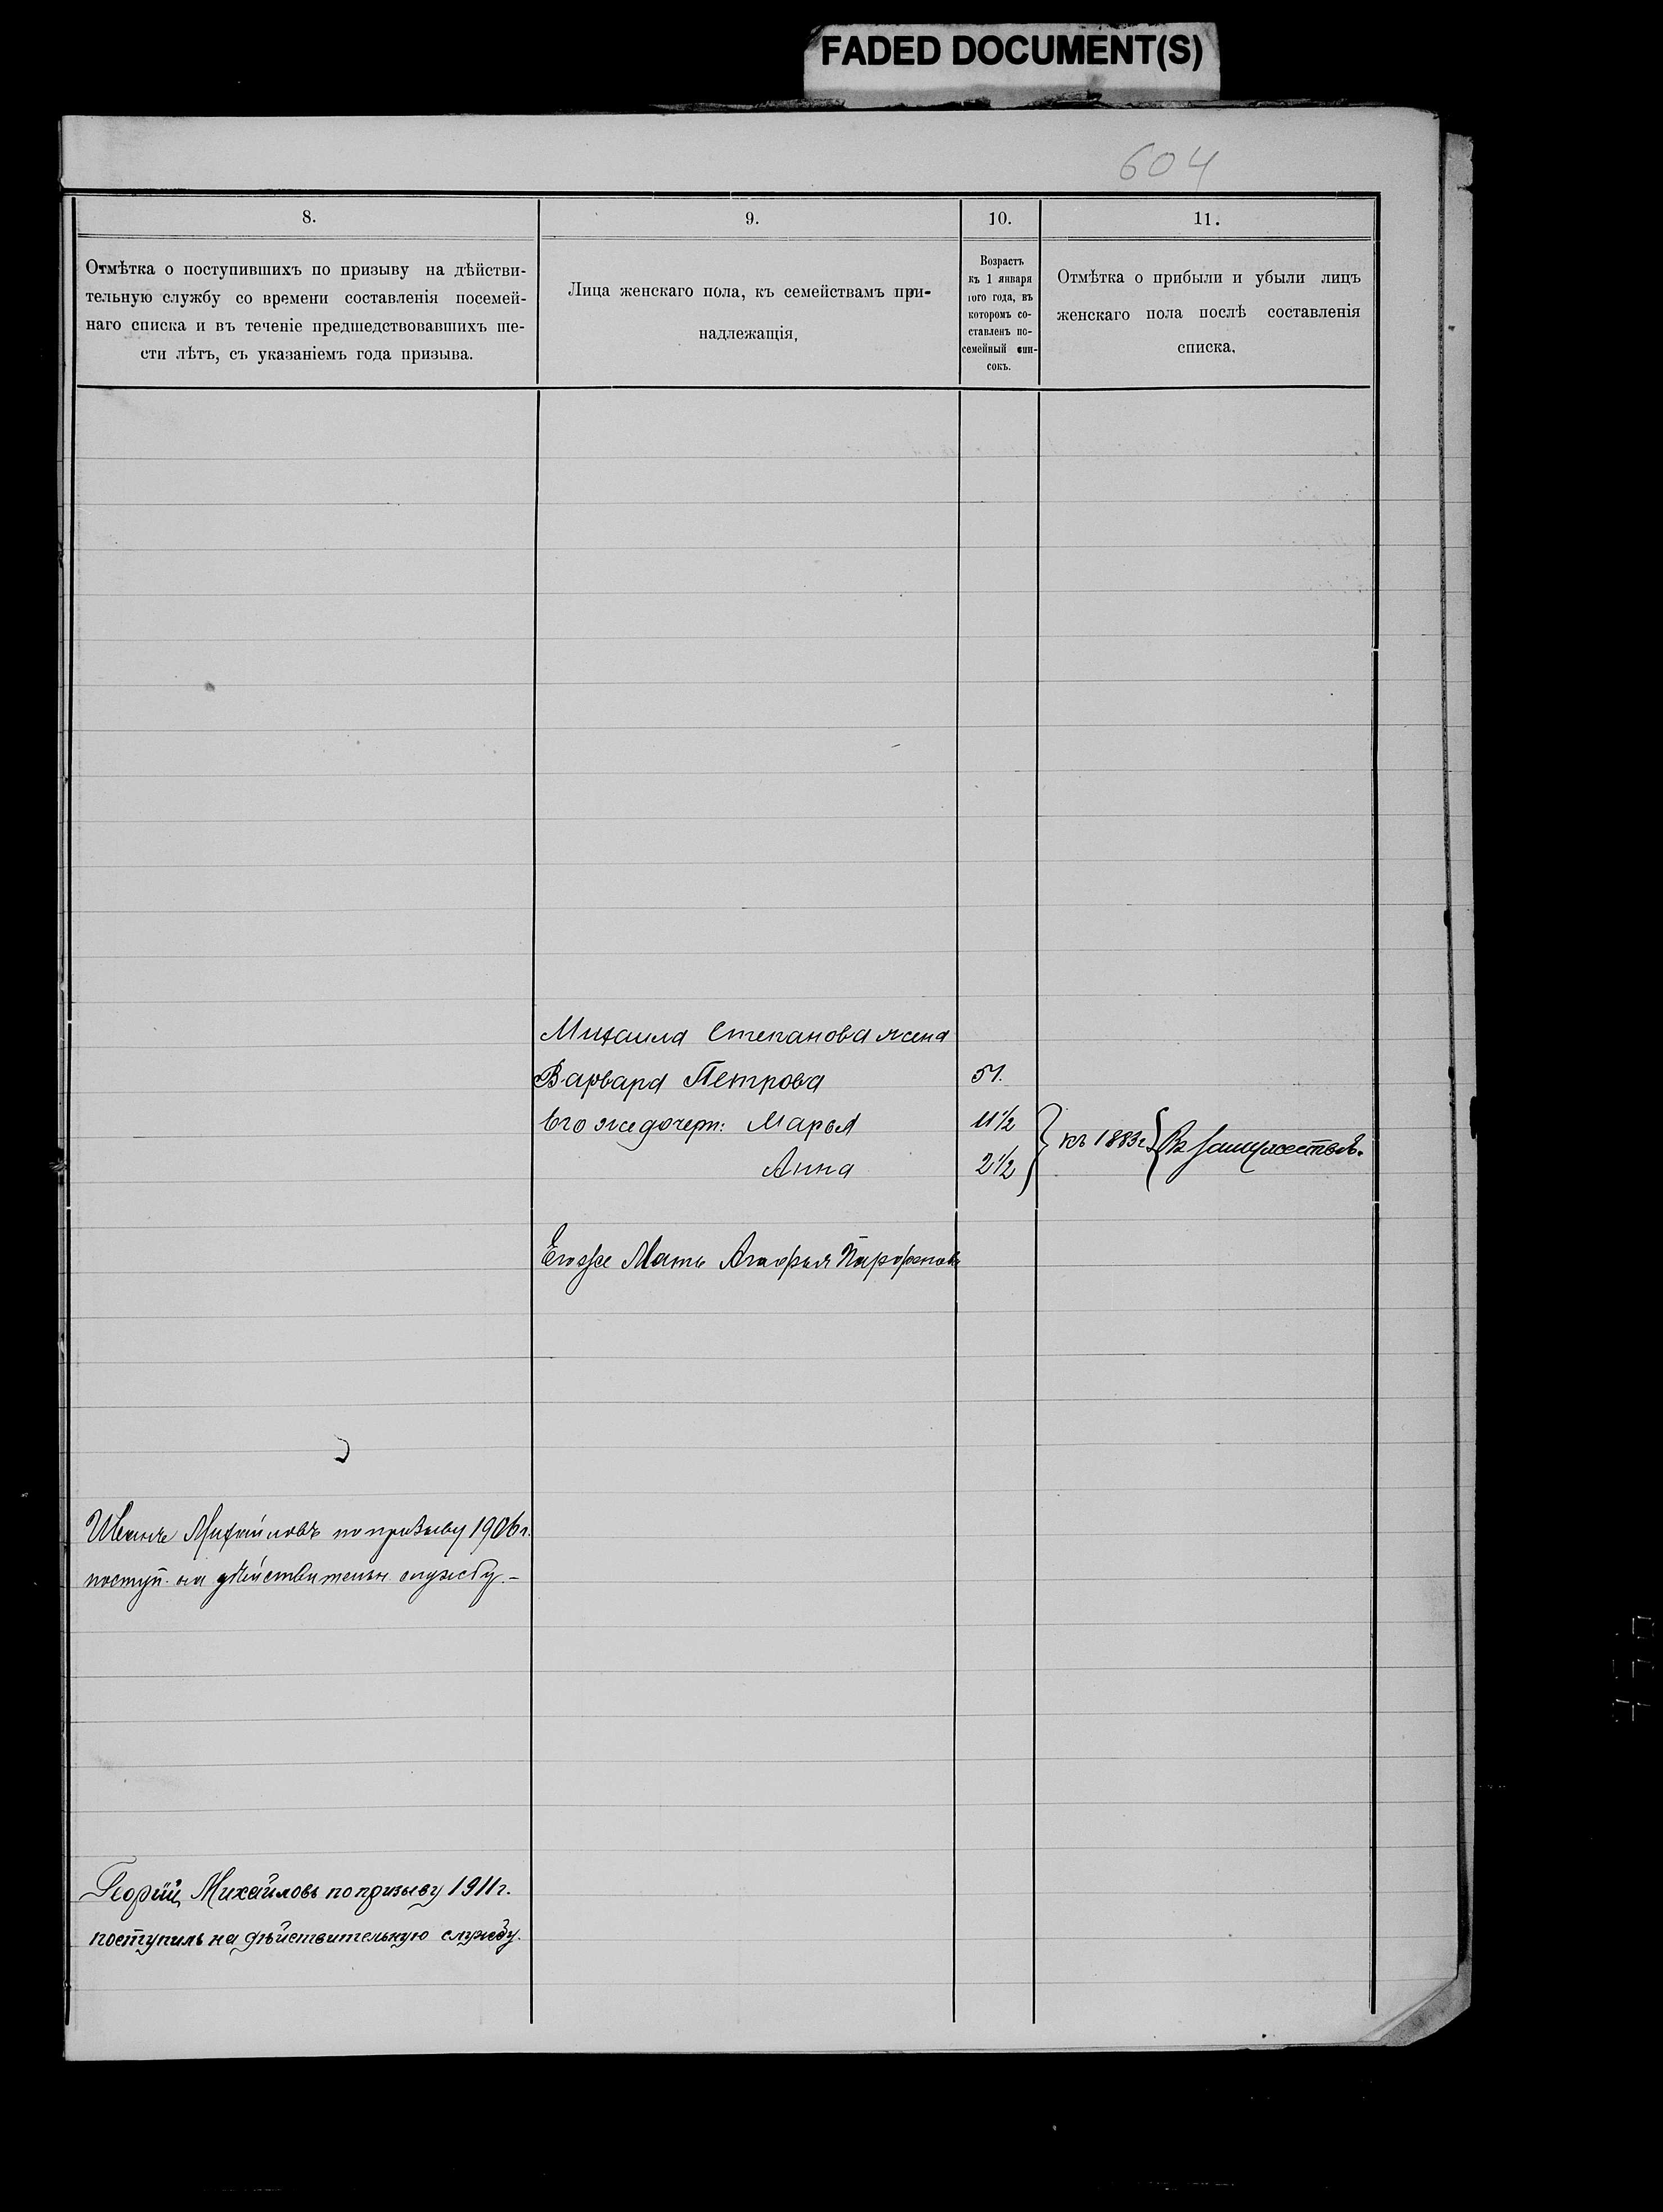 FADED DOCUMENT(S)
604
8.
Отмѣтка о поступившихъ по призыву на дѣйстви-
тельную службу со времени составленія посемей-
наго списка и въ теченіе предшедствовавшихъ ше-
сти лѣтъ, съ указаніемъ года призыва.
9.
Лица женскаго пола, къ семействамъ при-
надлежащія,
10.
Возрастъ
къ 1 января
того года, въ
которомъ со-
ставленъ по-
семейный спи-
сокъ.
11.
Отмѣтка о прибыли и убыли лицъ
женскаго пола послѣ составленія
списка.
Михаила Степанова жена
Варвара Петрова 51.
Его же дочери: Марья 11½
Анна 2½
къ 1883г. Въ замужествѣ.
Егоже Мать Агафья
Иванъ Михайловъ по призыву 1906г.
поступ. на дѣйствительн службу.-
Георгій Михайловъ по призыву 1911г.
поступилъ на дѣйствительную службу.